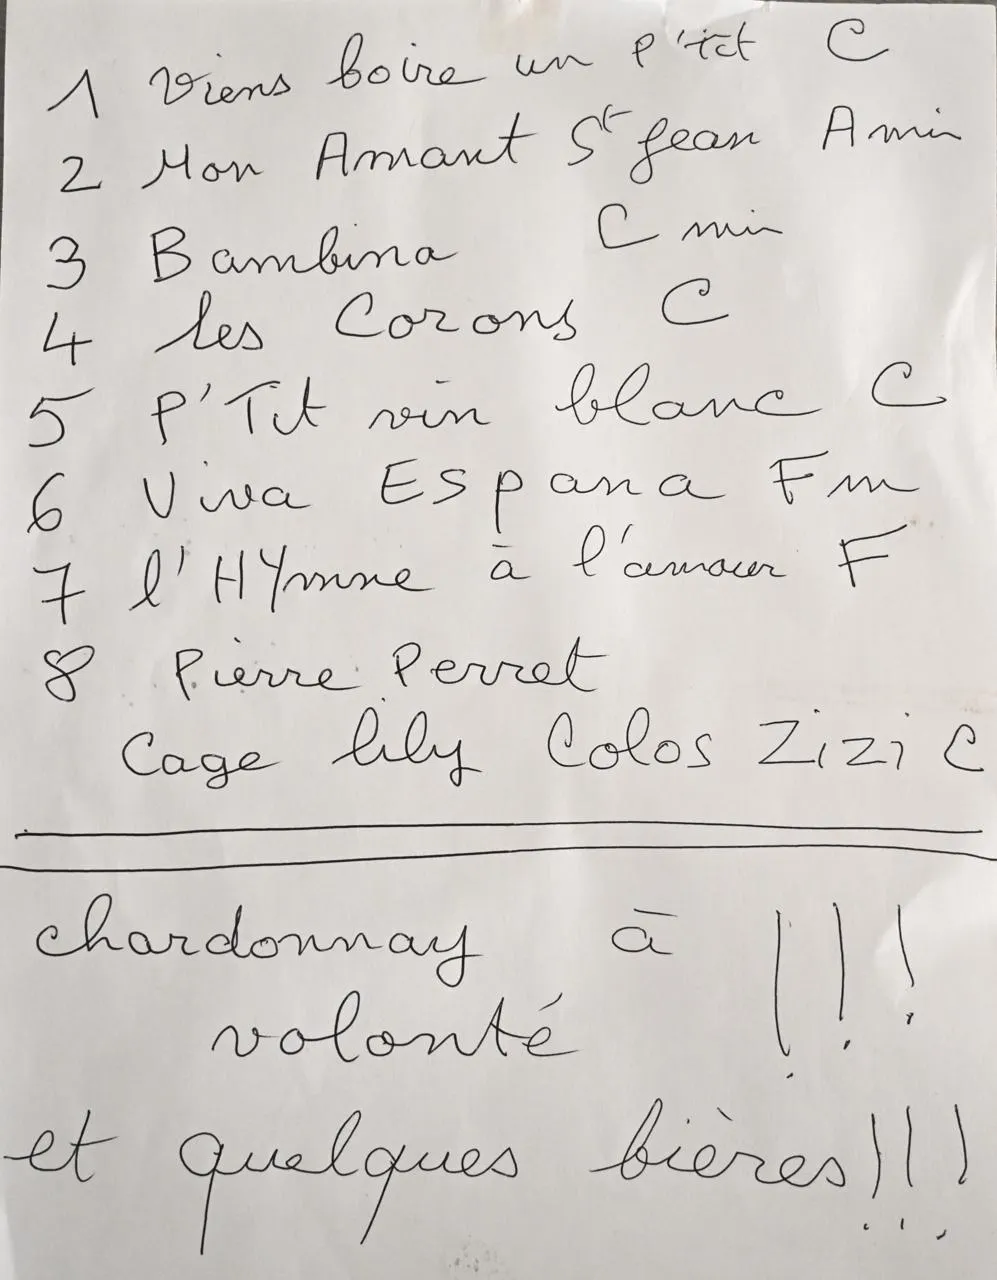 1 Viens boire un p'tit C
2 Mon Amant St Jean A min
3 Bambina C min
4 les Corons C
5 P'Tit vin blanc C
6 Viva Espana Fm
7 l'HYmne à l'amour F
8 Pierre Perret
Cage lily Colos Zizi C
chardonnay à !!!
volonté
et quelques bières!!!